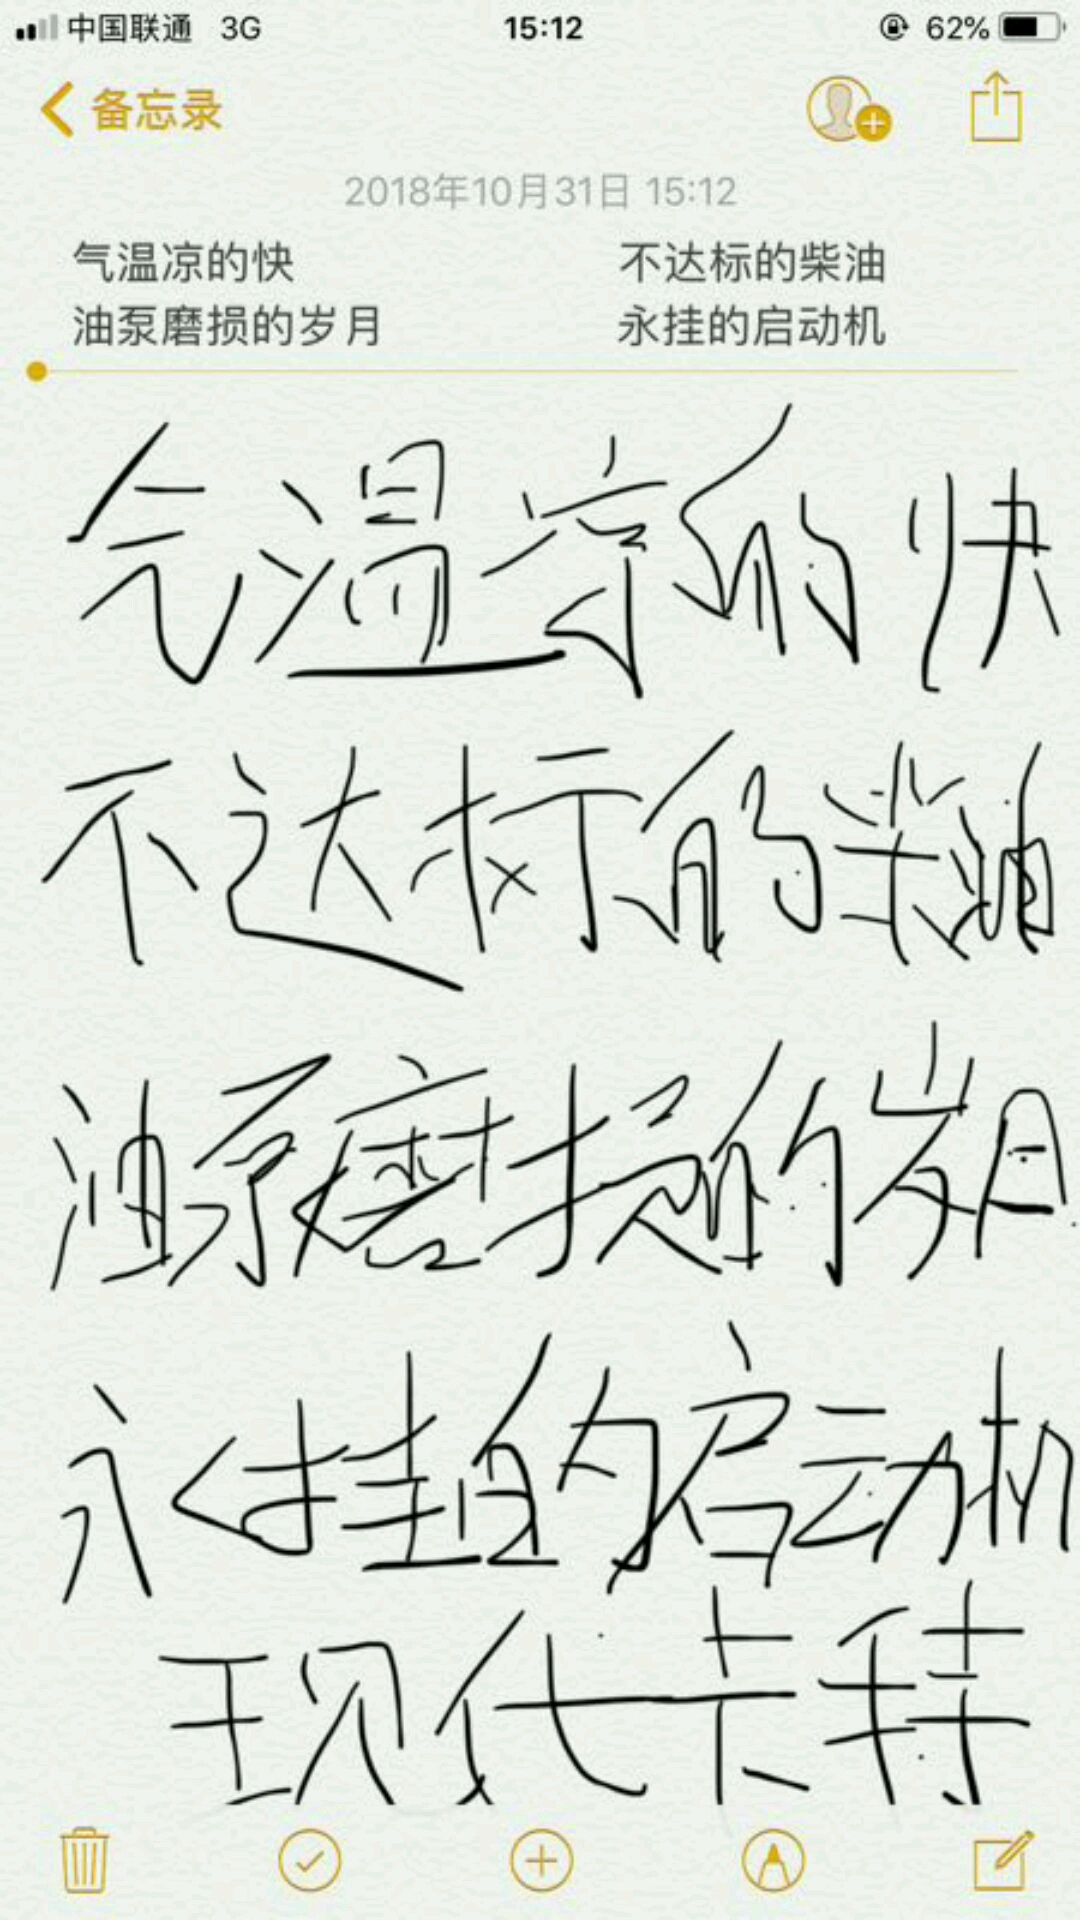 中国联通 3G 15:12 62%
备忘录
2018年10月31日 15:12
气温凉的快 不达标的柴油
油泵磨损的岁月 永挂的启动机
气温凉的快
不达标的柴油
油泵磨损的岁月
永挂的启动机
现代卡特